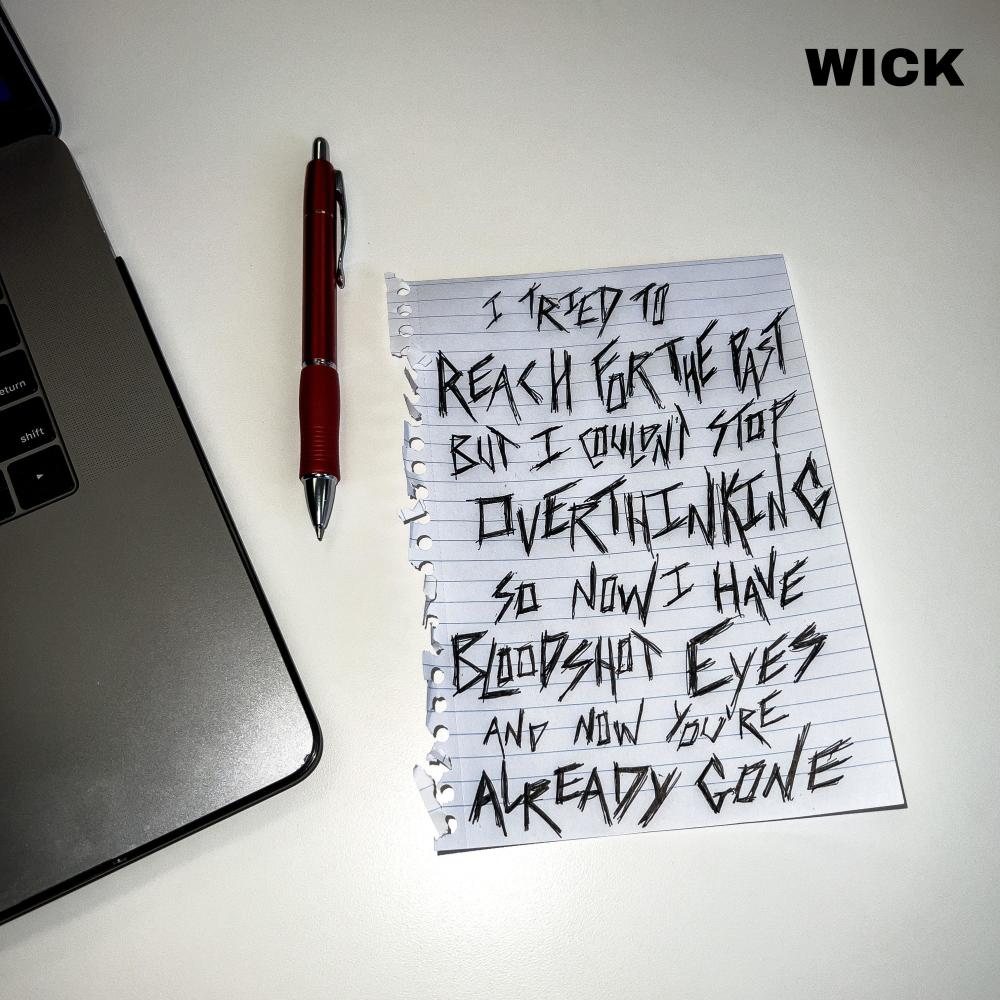 WICK
I TRIED TO
REACH FOR THE PAST
BUT I COULDN'T STOP
OVERTHINKING
SO NOW I HAVE
BLOODSHOT EYES
AND NOW YOU'RE
ALREADY GONE
return
shift